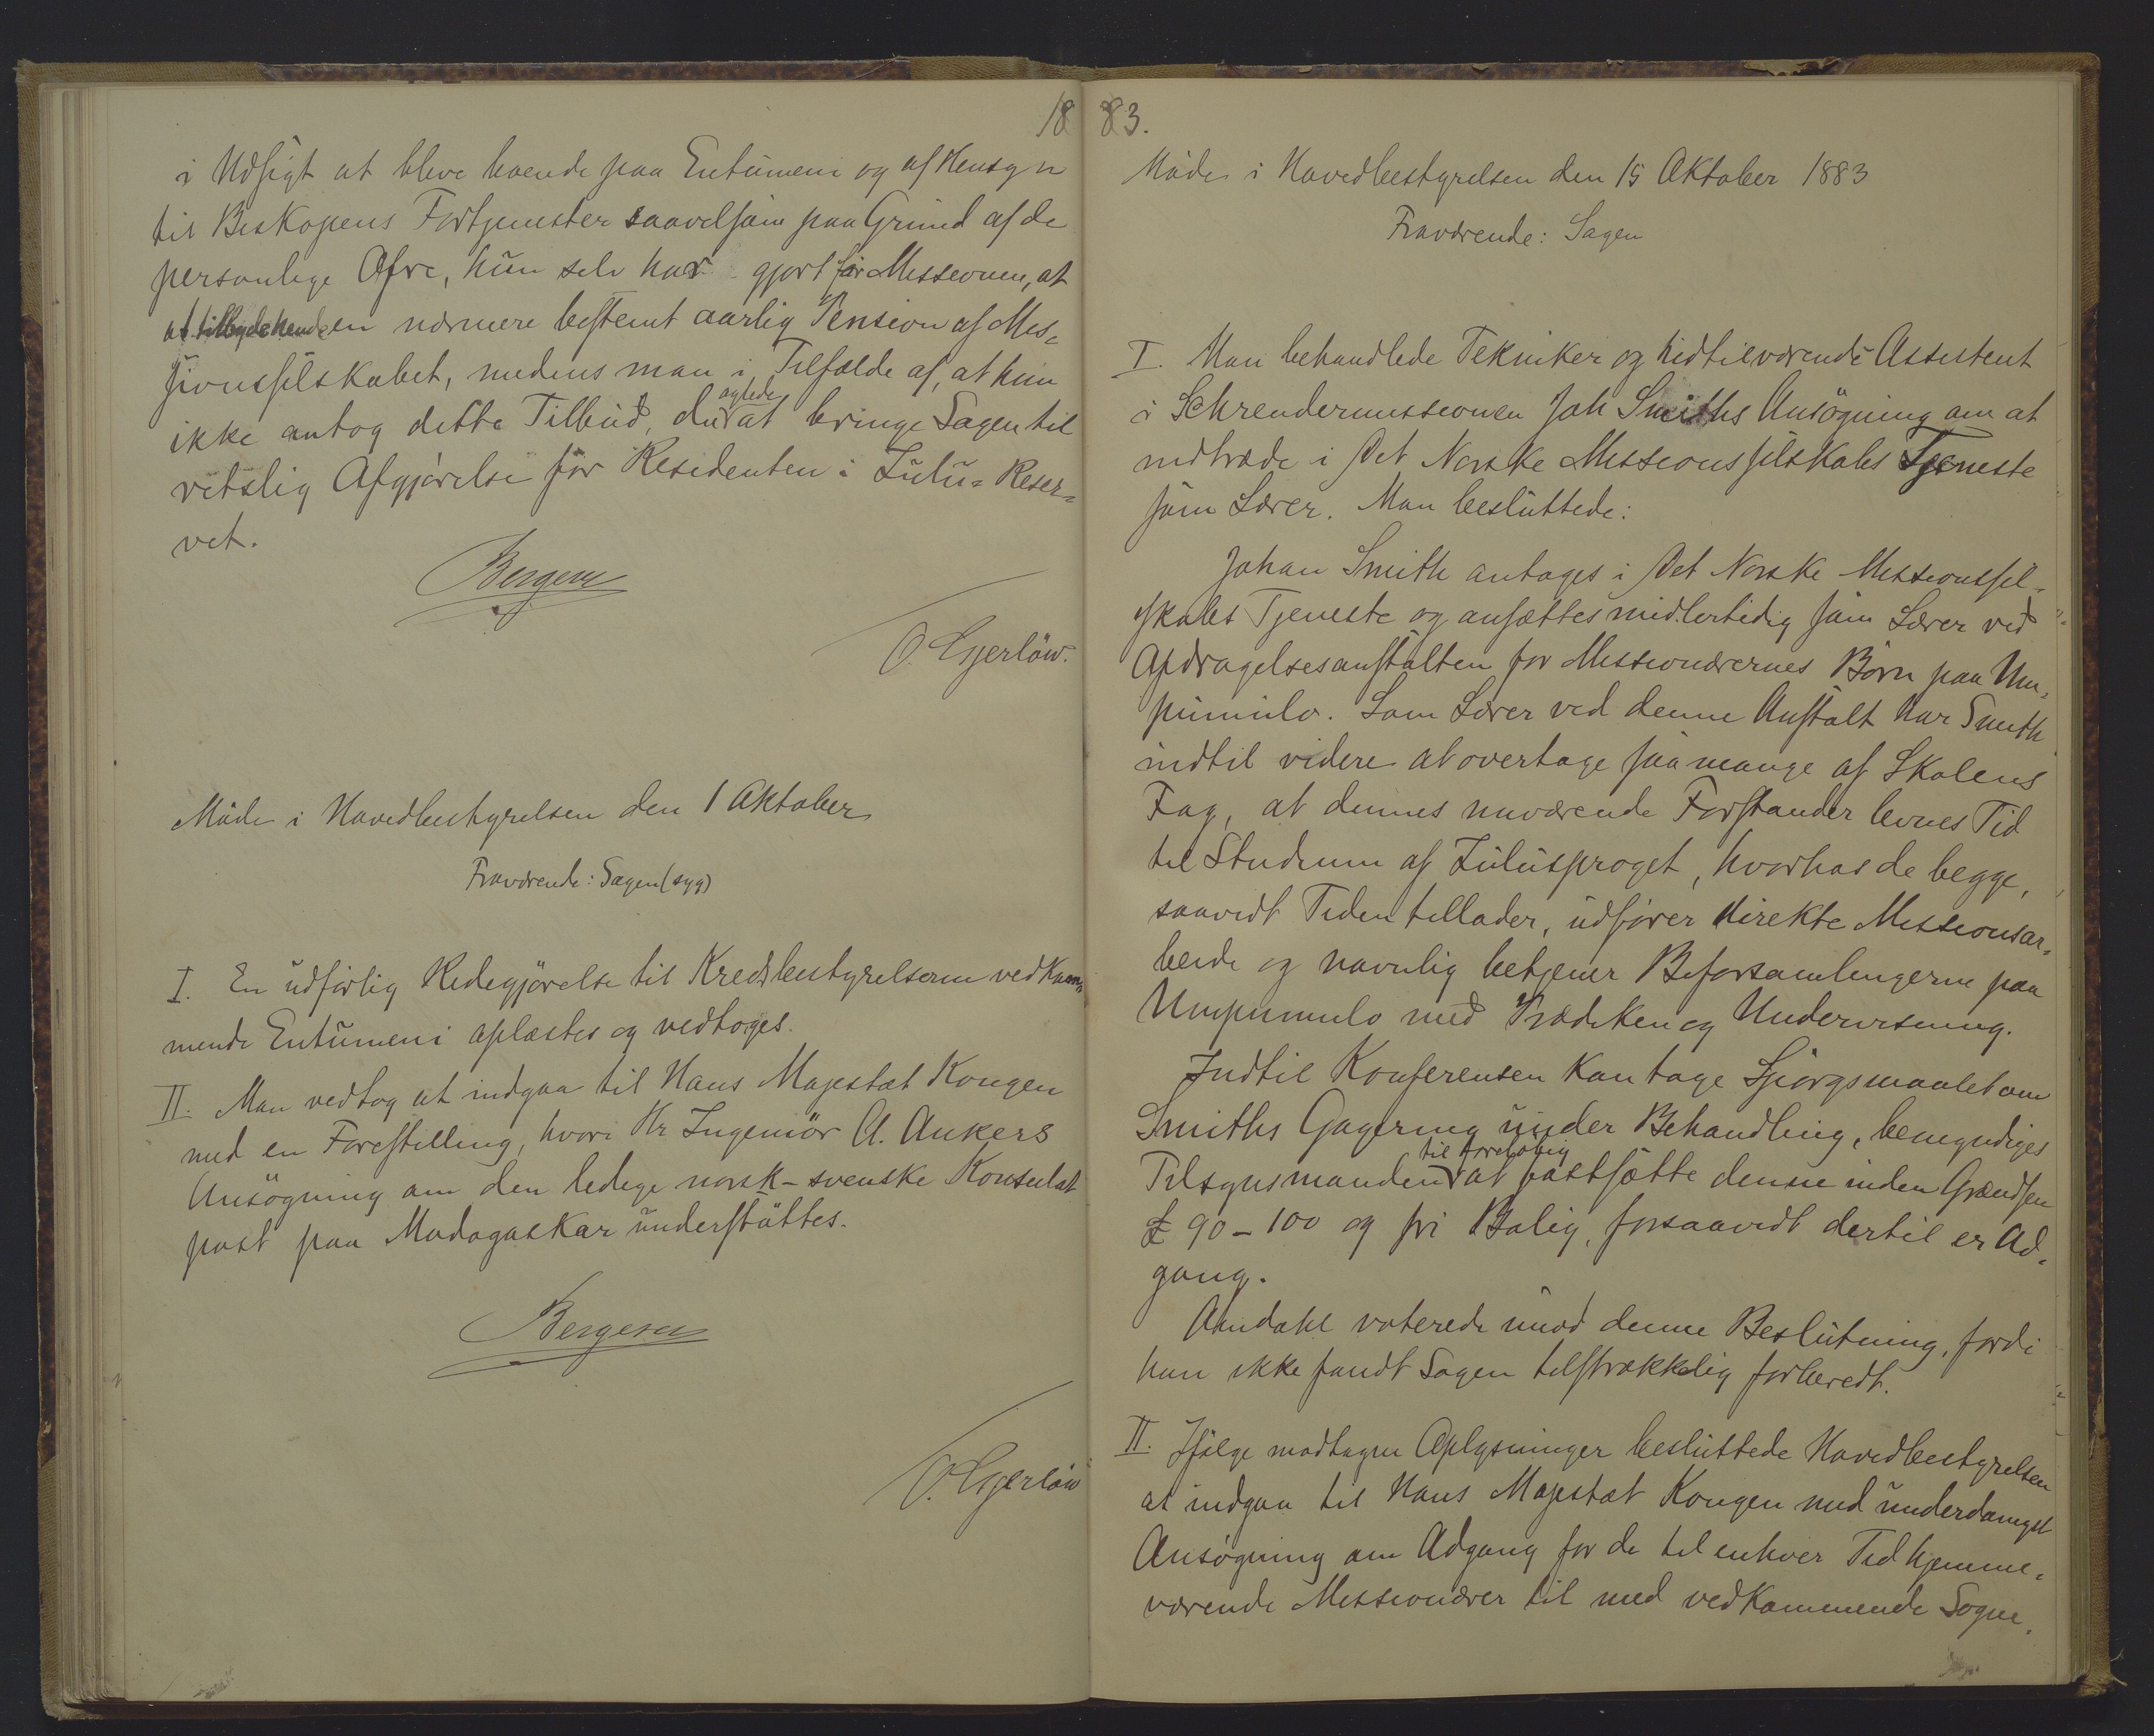 18
i Udsigt at blive boende paa Entumeni og af Hensyn
til Biskopens Fortjenester saavelsom paa Grund af de
personlige Ofre, hun selv har gjort for Missionen, at
at tilbyde hende en nærmere bestemt aarlig Pension af Mis-
sionsselskabet, medens man i Tilfælde af, at hun
ikke antog dette Tilbud, at bringe Sagen til
retslig Afgjørelse for Residenten i Zulu-Reser-
vet.
Bergersen
O. Gjerløw.
Møde i Hovedbestyrelsen den 1 Oktober
Fraværende: Sagen (syg)
I. En udførlig Redegjørelse til Kredsbestyrelserne vedkom-
mende Entumeni oplæstes og vedtoges.
II. Man vedtog at indgaa til Hans Majestæt Kongen
med en Forestilling, hvori Hr Ingeniør A. Ankers
Ansøgning om den ledige norsk-svenske Konsulat
post paa Madagaskar understøttes.
Bergersen
O. Gjerløw
83.
Møde i Hovedbestyrelsen den 15 Oktober 1883
Fraværende: Sagen
I. Man behandlede Tekniker og hidtilværende Assistent
i Schreudermissionen Joh Smiths Ansøgning om at
indtræde i Det Norske Missionsselskabs Tjeneste
som Lærer. Man besluttede:
Johan Smith antages i Det Norske Missionssel-
skabs Tjeneste og ansættes midlertidig som Lærer ved
Opdragelsesanstalten for Missionærernes Børn paa Um-
pumulo. Som Lærer ved denne Anstalt har Smith
indtil videre at overtage saa mange af Skolens
Fag, at dennes nuværende Forstander levnes Tid
til Studium af Zulusproget, hvorhos de begge,
saavidt Tiden tillader, udfører direkte Missionsar-
beide og navnlig betjener Beforsamlingerne paa
Umpumulo med Prædiken og Undervisning.
Indtil Konferensen kan tage Spørgsmaalet om
Smiths Gagering under Behandling, bemyndiges
til foreløbig
Tilsynsmanden at fastsætte denne inden Grændsen
£ 90-100 og fri Bolig, forsaavidt dertil er Ad-
gang.
Aandahl voterede imod denne Beslutning, fordi
han ikke fandt Sagen tilstrækkelig forberedt.
II. Ifølge modtagne Oplysninger besluttede Hovedbestyrelsen
at indgaa til Hans Majestæt Kongen med underdanigst
Ansøgning om Adgang for de til enhver Tid hjemme-
værende Missionærer til med vedkommende Sogne-